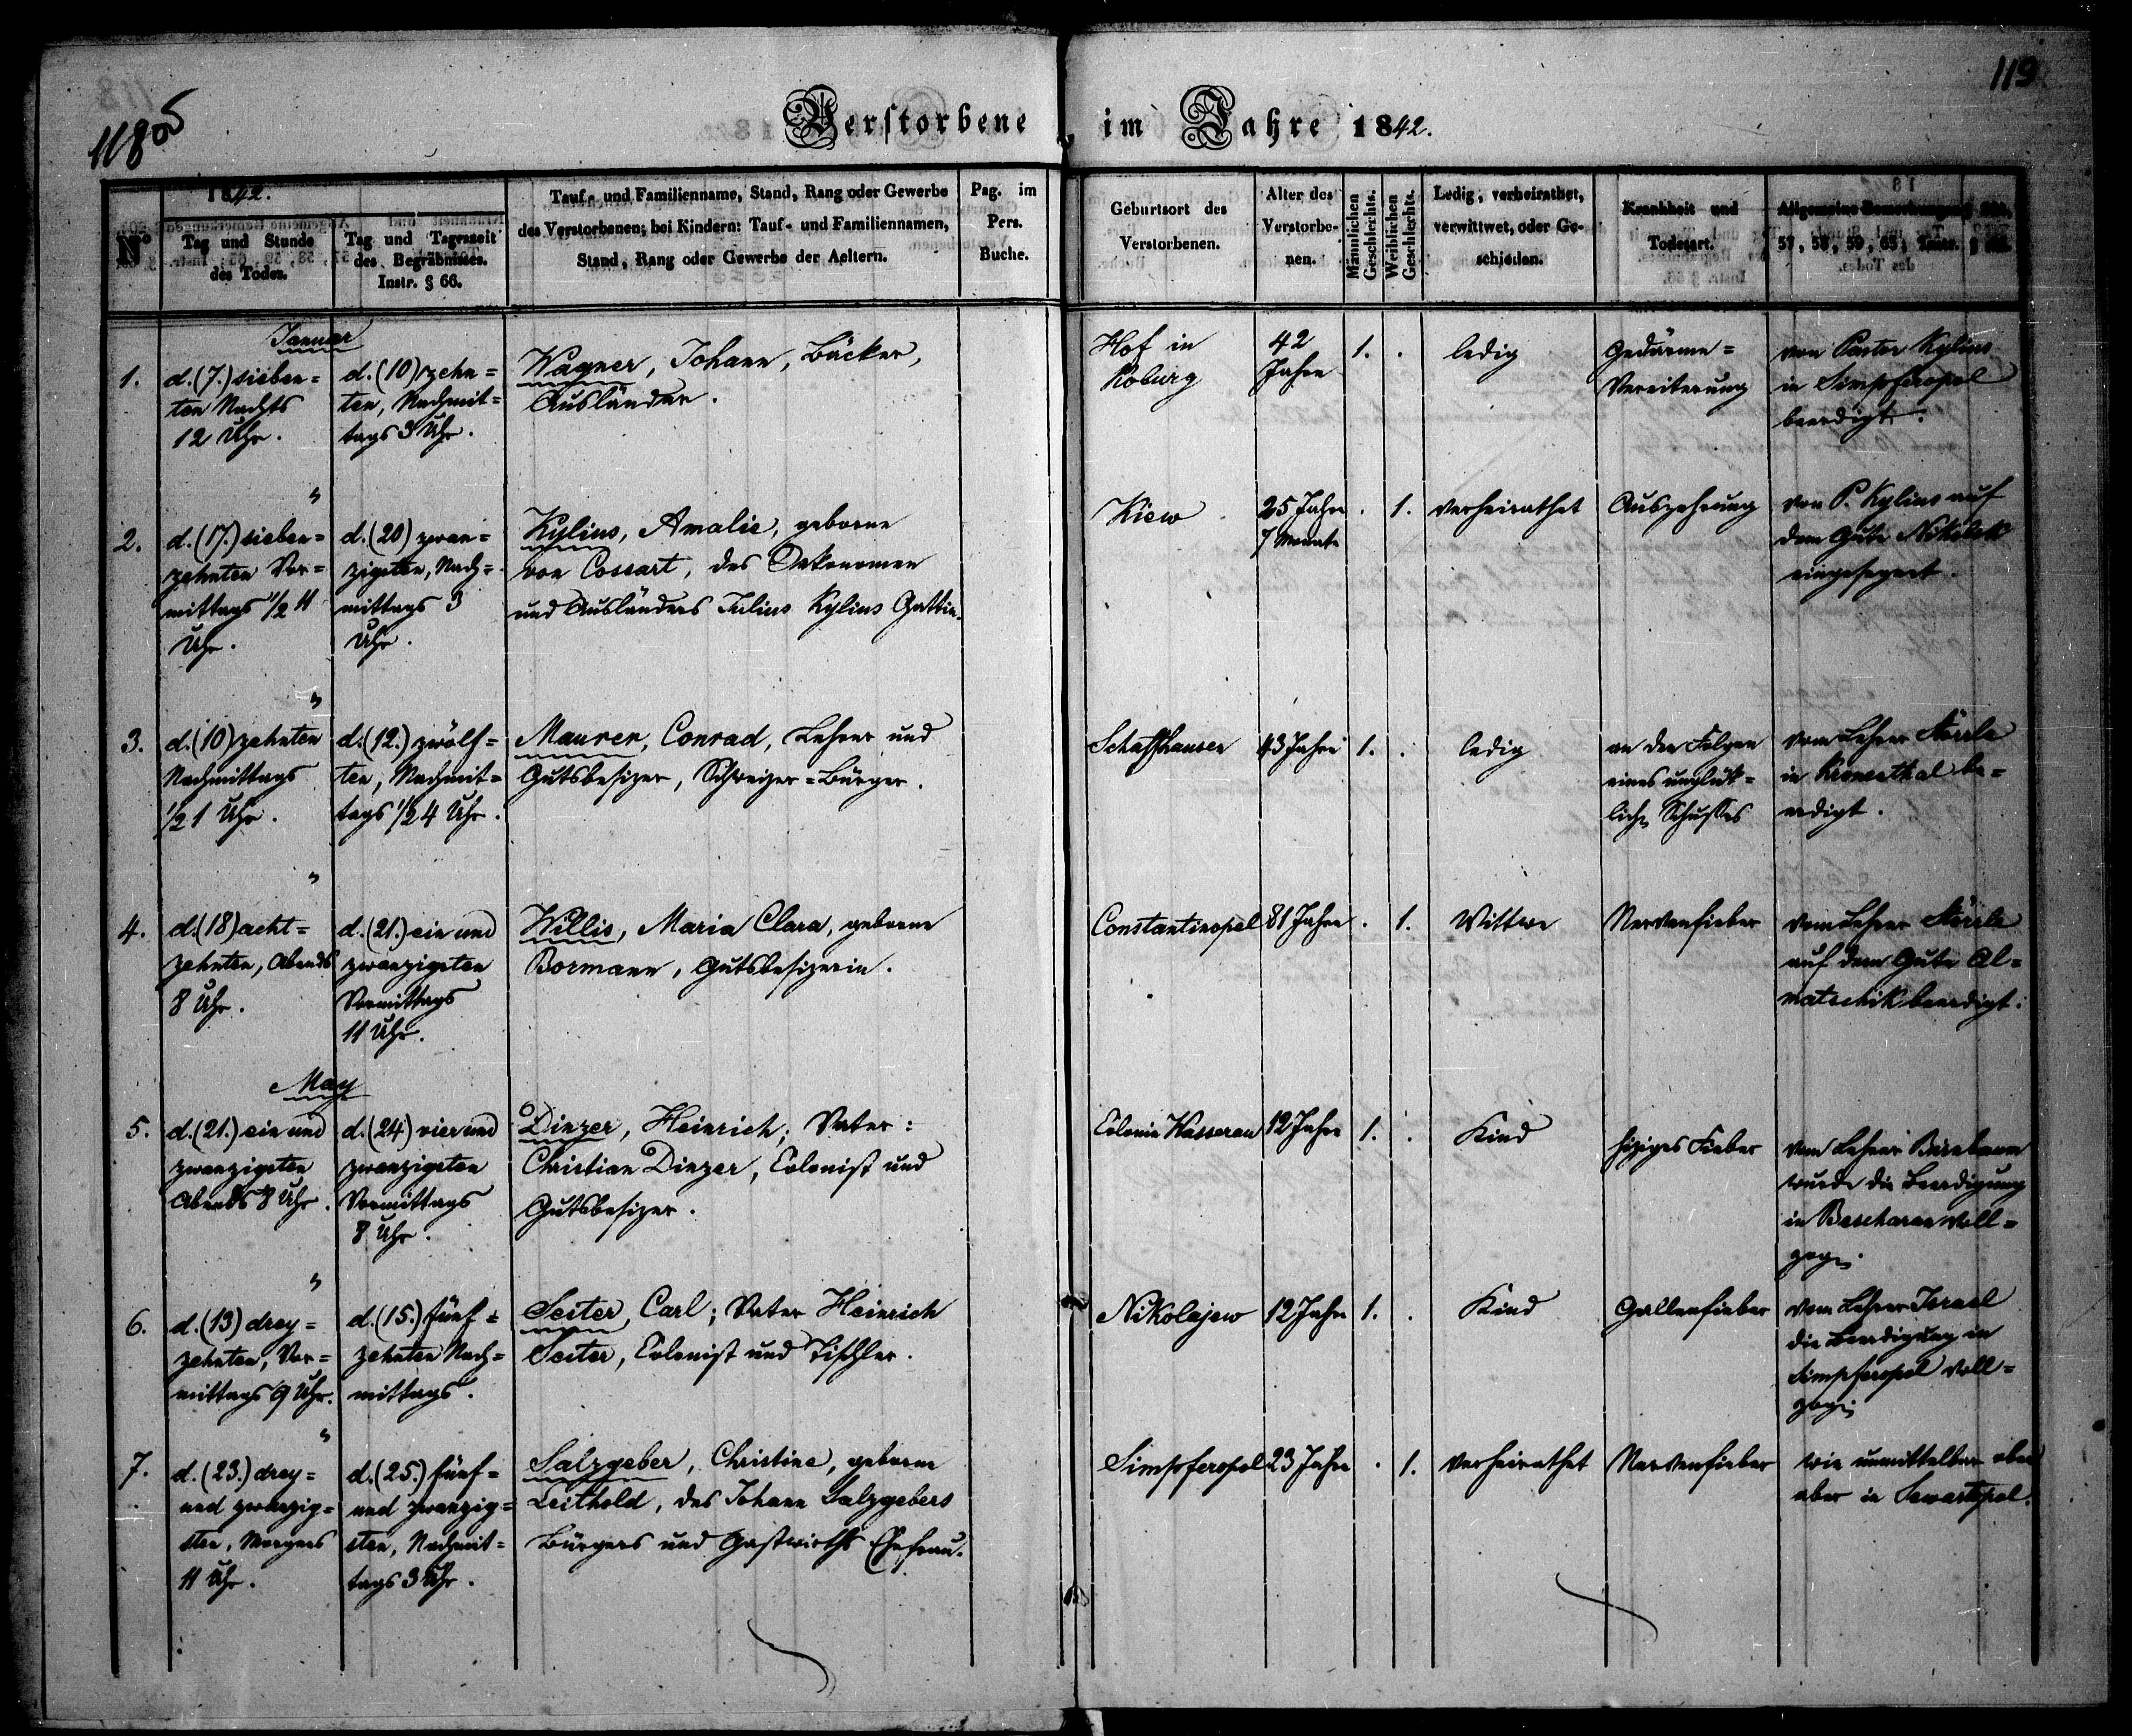 118 об
119
Verstorbene im Jahre 1842.
No
1842.
Tag und Stunde
des Todes.
Tag und Tageszeit
des Begräbnisses.
Instr. § 66.
Tauf- und Familienname, Stand, Rang oder Gewerbe
des Verstorbenen; bei Kindern: Tauf- und Familiennamen,
Stand, Rang oder Gewerbe der Aeltern.
Pag. im
Pers.
Buche.
Geburtsort des
Verstorbenen.
Alter des
Verstorbe-
nen.
Männlichen
Geschlechts.
Weiblichen
Geschlechts.
Ledig, verheirathet,
verwittwet, oder Ge-
schieden.
Krankheit und
Todesart.
Allgemeine Bemerkungen
57, 58, 59, 65, Instr.
Januar
1.
d. (7.) sieben=
ten Nachts
12 Uhr.
d. (10) zehn=
ten, Nachmit=
tags 3 Uhr.
Wagner, Johann, Bäcker,
Ausländer.
Hof in
Koburg
42
Jahre
1. .
ledig
Gedärme=
Vereiterung
von Pastor Kylius
in Simpferopol
beerdigt.
"
2.
d. (17.) sieben=
zehnten Vor=
mittags 1/2 11
Uhr.
d. (20) zwan=
zigsten, Nach=
mittags 3
Uhr.
Kylius, Amalie, geborne
von Cossart, des Oekonomen
und Ausländers Julius Kylius Gattin.
Kiew
25 Jahre
7 Monate
. 1.
verheirathet
Auszehrung
von P. Kylius auf
dem Gute
eingesegnet.
"
3.
d. (10) zehnten
Nachmittags
1/2 1 Uhr.
d. (12.) zwölf=
ten, Nachmit=
tags 1/2 4 Uhr.
Maurer, Conrad, Lehrer und
Gutsbesizer, Schweizer=Bürger.
Schaffhausen
43 Jahre
1. .
ledig
an den Folgen
eines unglük=
lichen Schusses
vom Lehrer
in Kronenthal be=
erdigt.
"
4.
d. (18) acht=
zehnten, Abends
8 Uhr.
d. (21.) ein und
zwanzigsten
Vormittags
11 Uhr.
Willis, Maria Clara, geborne
Bormann, Gutsbesizerin.
Constantinopel
81 Jahre
. 1.
Wittwe
Nervenfieber
vom Lehrer
auf dem Gute Al=
matschik beerdigt.
May
5.
d. (21.) ein und
zwanzigsten
Abends 8 Uhr.
d. (24) vier und
zwanzigsten
Vormittags
8 Uhr.
Dinzer, Heinrich; Vater:
Christian Dinzer, Colonist und
Gutsbesizer.
Colonie Wasserau
12 Jahre
1. .
Kind
hiziges Fieber
vom Lehrer Birnbaum
wurde die Beerdigung
in Bascharan voll=
zogen.
"
6.
d. (13) drey=
zehnten, Vor=
mittags 9 Uhr.
d. (15.) fünf=
zehnten Nach=
mittags.
Seiter, Carl; Vater Heinrich
Seiter, Colonist und Tischler.
Nikolajew
12 Jahre
1. .
Kind
Gallenfieber
vom Lehrer Israel
die Beerdigung in
Simpferopol voll=
zogen
"
7.
d. (23.) drey=
und zwanzig=
sten, Morgens
11 Uhr.
d. (25.) fünf=
und zwanzig=
sten, Nachmit=
tags 3 Uhr.
Salzgeber, Christine, geborne
Leithold, des Johann Salzgebers
Bürgers und Gastwirths Ehefrau.
Simpferopol
23 Jahre
. 1.
verheirathet
Nervenfieber
wie unmittelbar oben
aber in Sewastopol.